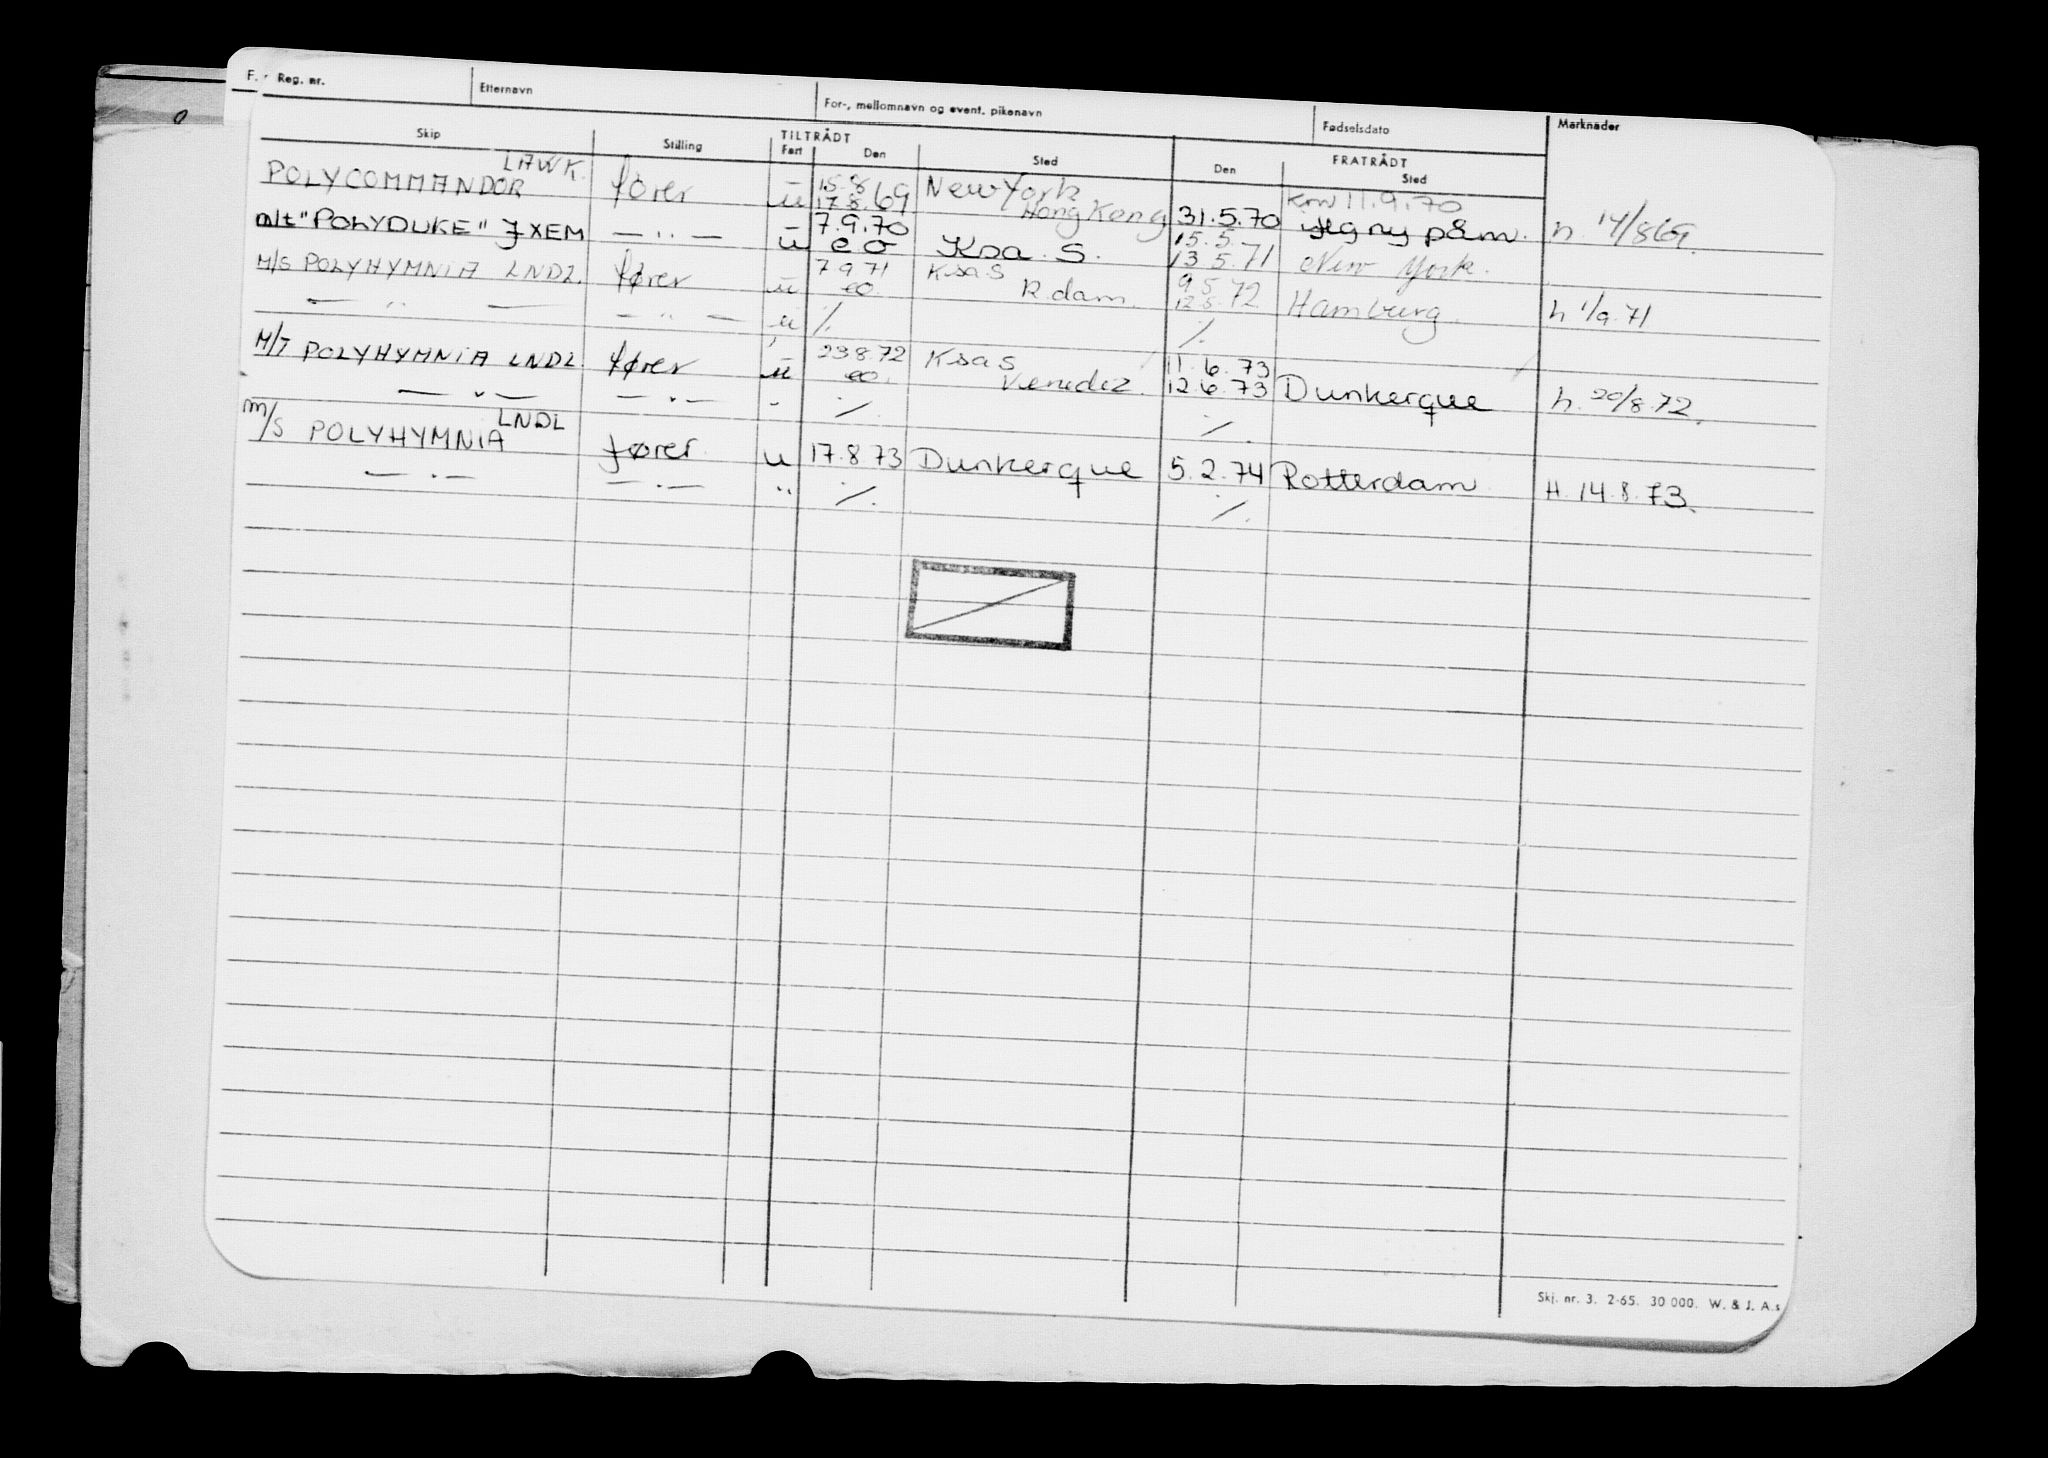 F. Reg. nr. Etternavn For-, mellomnavn og event. pikenavn Fødselsdato Merknader
Skip Stilling TILTRÅDT FRATRÅDT
Fart Den Sted Den Sted
LAWK.
POLYCOMMANDOR fører u 15.8 17.8.69 New York Hong Kong 31.5.70 h. 14/8 69.
11.9.70
m/t "POLYDUKE" JXEM — " — u 7.9.70 eo Ksa. S. 15.5. 13.5.71 New York.
M/S POLYHYMNIA LNDL. fører u 7 9 71 eo. Ksa S R.dam. 9.5 12.5.72 Hamburg. h 1/9.71
— " — — " — u ./. ./.
M/T POLYHYMNIA LNDL. fører u 23 8.72 eo. Ksa S Venediz. 11.6.73 12.6.73 Dunkerque h. 20/8.72.
— " — — " — - ./. ./.
LNDL
m/s POLYHYMNIA fører u 17.8 73 Dunkerque 5.2.74 Rotterdam H. 14.8.73.
— " — — " — " ./. ./.
Skj. nr. 3. 2-65. 30 000. W. & J. A.s